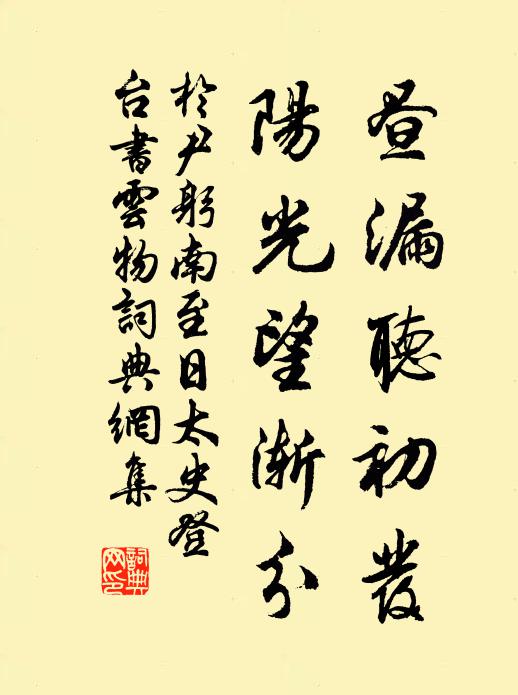 昼漏聽初發
陽光望漸分
於尹躬南至日太史登
台書雲物詞典網集
詞典网印